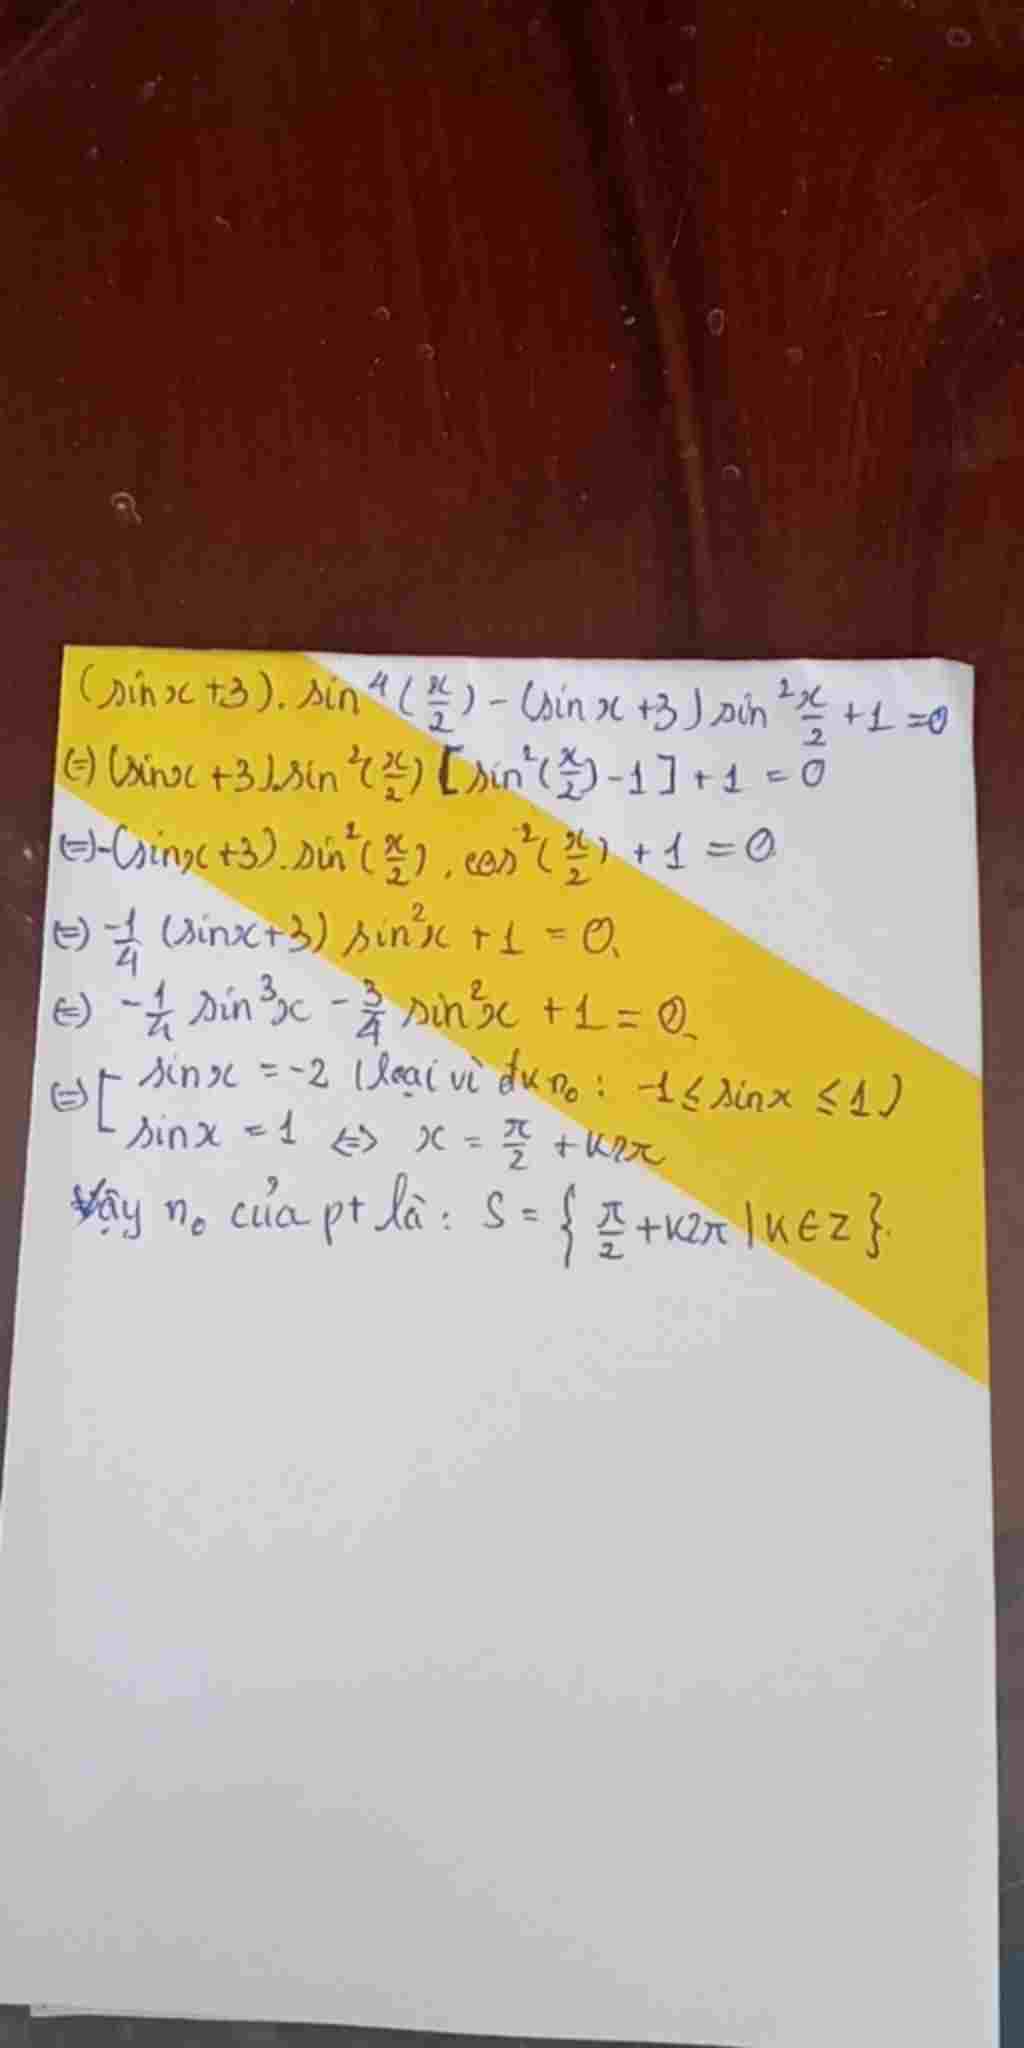 (sinx+3).sin⁴(x/2) - (sinx+3)sin²x/2 + 1 = 0
(=) (sinx+3).sin²(x/2) [sin²(x/2) - 1] + 1 = 0
(=) -(sinx+3).sin²(x/2).cos²(x/2) + 1 = 0
(=) -1/4 (sinx+3) sin²x + 1 = 0.
(=) -1/4 sin³x - 3/4 sin²x + 1 = 0
(=) [ sinx = -2 (loại vì đk n₀: -1 ≤ sinx ≤ 1)
sinx = 1 <=> x = π/2 + k2π
Vậy n₀ của pt là: S = { π/2 + k2π | k ∈ Z }.